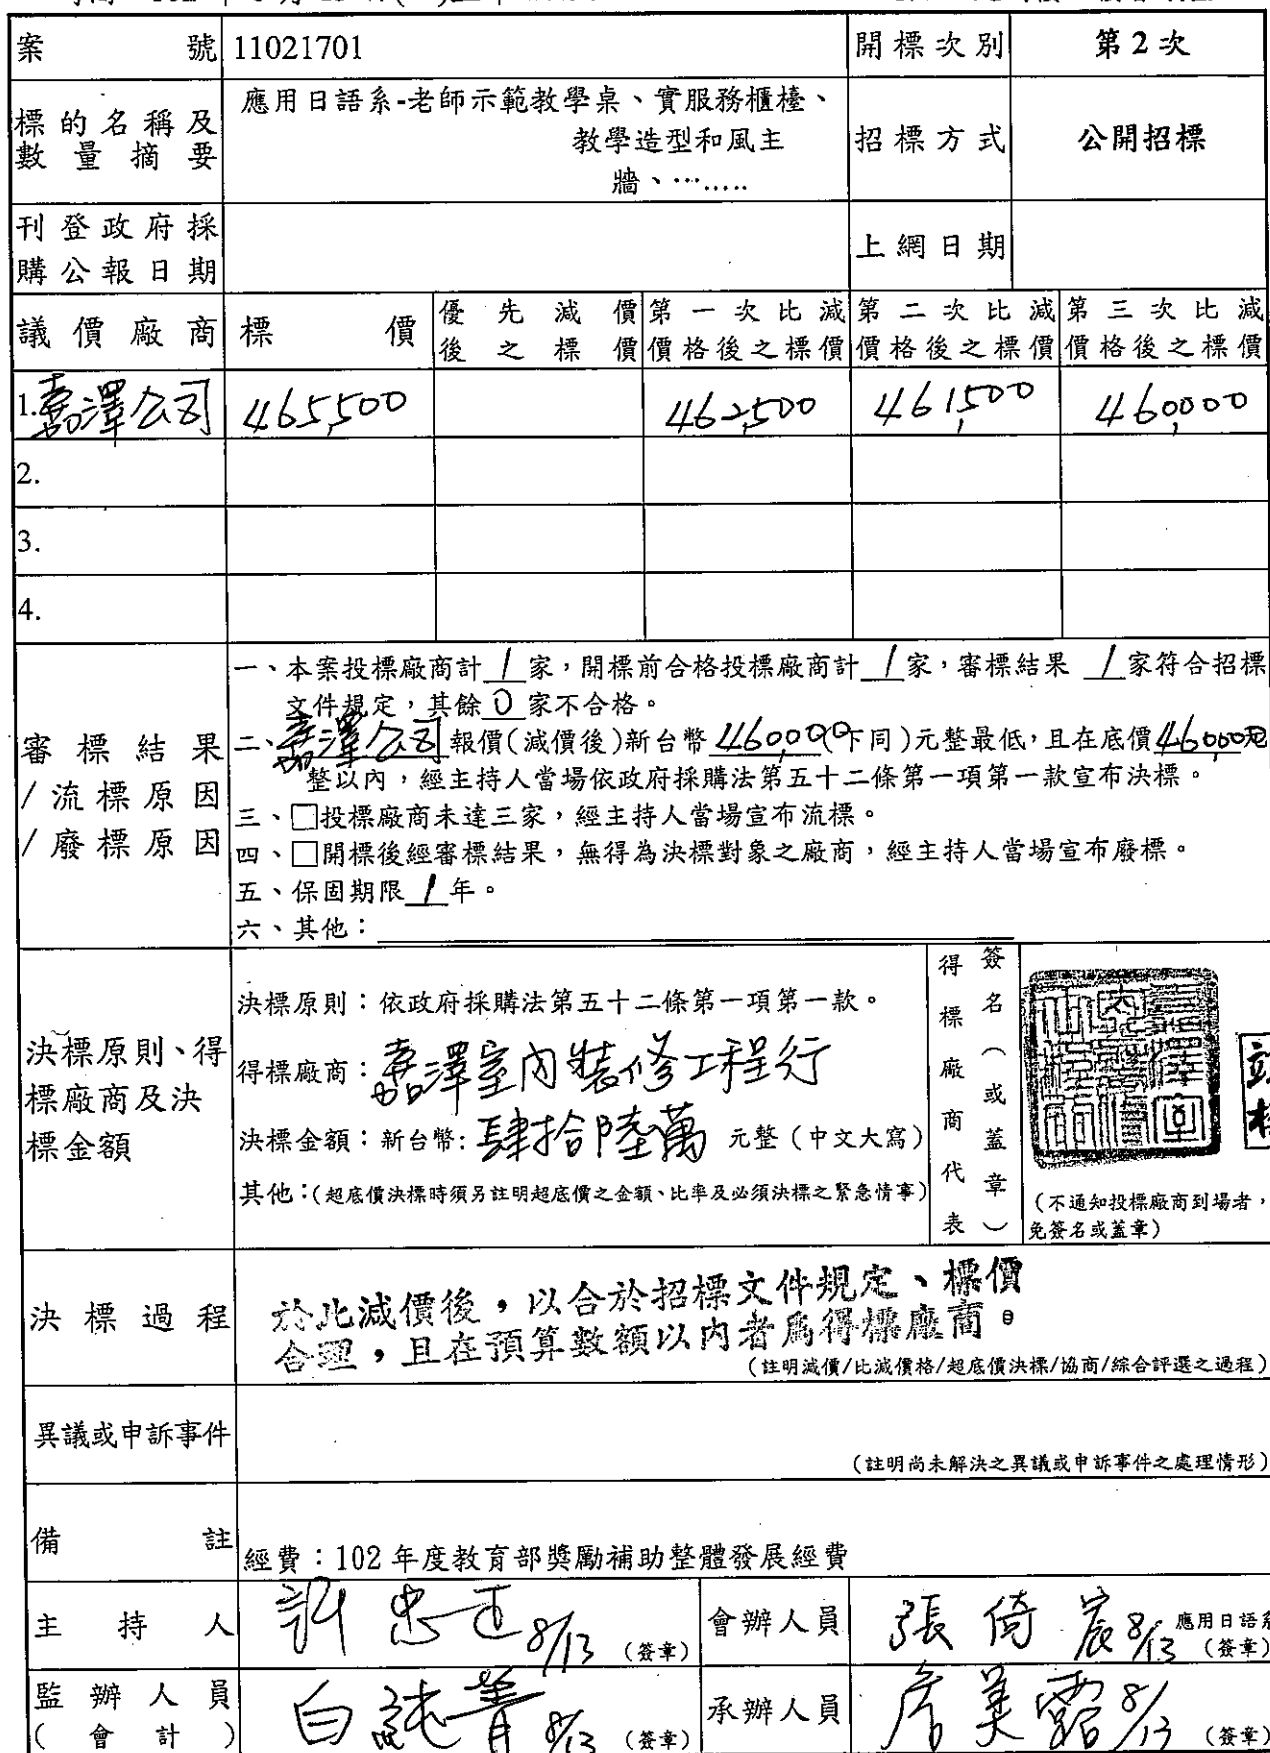 案 號 11021701 開標次別 第2次
標的名稱及數量摘要 應用日語系-老師示範教學桌、實服務櫃檯、
教學造型和風主
牆、…….. 招標方式 公開招標
刊登政府採購公報日期 上網日期
議價廠商 標 價 優先減價後之標價 第一次比減價格後之標價 第二次比減價格後之標價 第三次比減價格後之標價
1.嘉澤公司 465,500 462,500 461,500 460,000
2.
3.
4.
審標結果/流標原因/廢標原因
一、本案投標廠商計 1 家,開標前合格投標廠商計 1 家,審標結果 1 家符合招標
文件規定,其餘 0 家不合格。
二、嘉澤公司 報價(減價後)新台幣 460,000(下同)元整最低,且在底價 460,000元
整以內,經主持人當場依政府採購法第五十二條第一項第一款宣布決標。
三、□投標廠商未達三家,經主持人當場宣布流標。
四、□開標後經審標結果,無得為決標對象之廠商,經主持人當場宣布廢標。
五、保固期限 1 年。
六、其他:
決標原則、得標廠商及決標金額
決標原則:依政府採購法第五十二條第一項第一款。
得標廠商:嘉澤室內裝修工程行
決標金額:新台幣:肆拾陸萬 元整(中文大寫)
其他:(超底價決標時須另註明超底價之金額、比率及必須決標之緊急情事)
得標廠商代表 簽名(或蓋章)
(不通知投標廠商到場者,
免簽名或蓋章)
決標過程 於比減價後,以合於招標文件規定、標價
合理,且在預算數額以內者為得標廠商。
(註明減價/比減價格/超底價決標/協商/綜合評選之過程)
異議或申訴事件
(註明尚未解決之異議或申訴事件之處理情形)
備 註 經費:102年度教育部獎勵補助整體發展經費
主 持 人 許忠正 8/13 (簽章) 會辦人員 張倚宸 8/13 應用日語系
(簽章)
監辦人員
(會計) 白 菁 8/13 (簽章) 承辦人員 詹美露 8/13 (簽章)